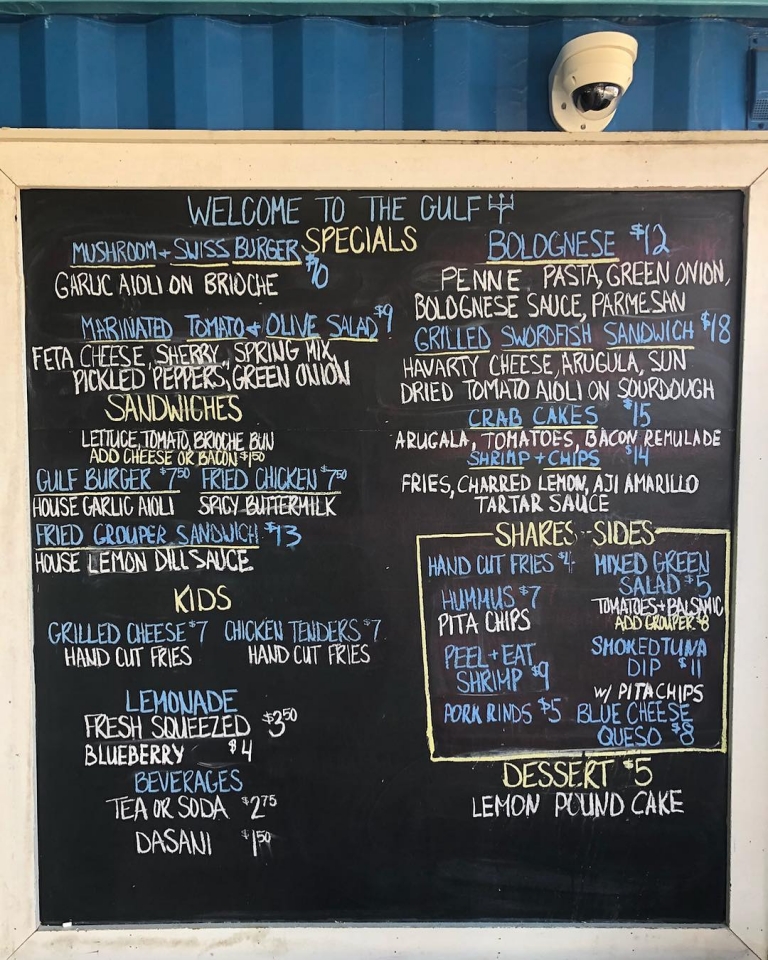 WELCOME TO THE GULF
SPECIALS
MUSHROOM + SWISS BURGER $10
GARLIC AIOLI ON BRIOCHE
MARINATED TOMATO + OLIVE SALAD $9
FETA CHEESE, SHERRY, SPRING MIX,
PICKLED PEPPERS, GREEN ONION
SANDWICHES
LETTUCE, TOMATO, BRIOCHE BUN
ADD CHEESE OR BACON $1.50
GULF BURGER $7.50 FRIED CHICKEN $7.50
HOUSE GARLIC AIOLI SPICY BUTTERMILK
FRIED GROUPER SANDWICH $13
HOUSE LEMON DILL SAUCE
KIDS
GRILLED CHEESE $7 CHICKEN TENDERS $7
HAND CUT FRIES HAND CUT FRIES
LEMONADE
FRESH SQUEEZED $3.50
BLUEBERRY $4
BEVERAGES
TEA OR SODA $2.75
DASANI $1.50
BOLOGNESE $12
PENNE PASTA, GREEN ONION,
BOLOGNESE SAUCE, PARMESAN
GRILLED SWORDFISH SANDWICH $18
HAVARTY CHEESE, ARUGULA, SUN
DRIED TOMATO AIOLI ON SOURDOUGH
CRAB CAKES $15
ARUGALA, TOMATOES, BACON REMULADE
SHRIMP + CHIPS $14
FRIES, CHARRED LEMON, AJI AMARILLO
TARTAR SAUCE
SHARES - SIDES
HAND CUT FRIES $4
HUMMUS $7
PITA CHIPS
PEEL + EAT
SHRIMP $9
PORK RINDS $5
MIXED GREEN
SALAD $5
TOMATOES + BALSAMIC
ADD GROUPER $8
SMOKED TUNA
DIP $11
W/ PITA CHIPS
BLUE CHEESE
QUESO $8
DESSERT $5
LEMON POUND CAKE